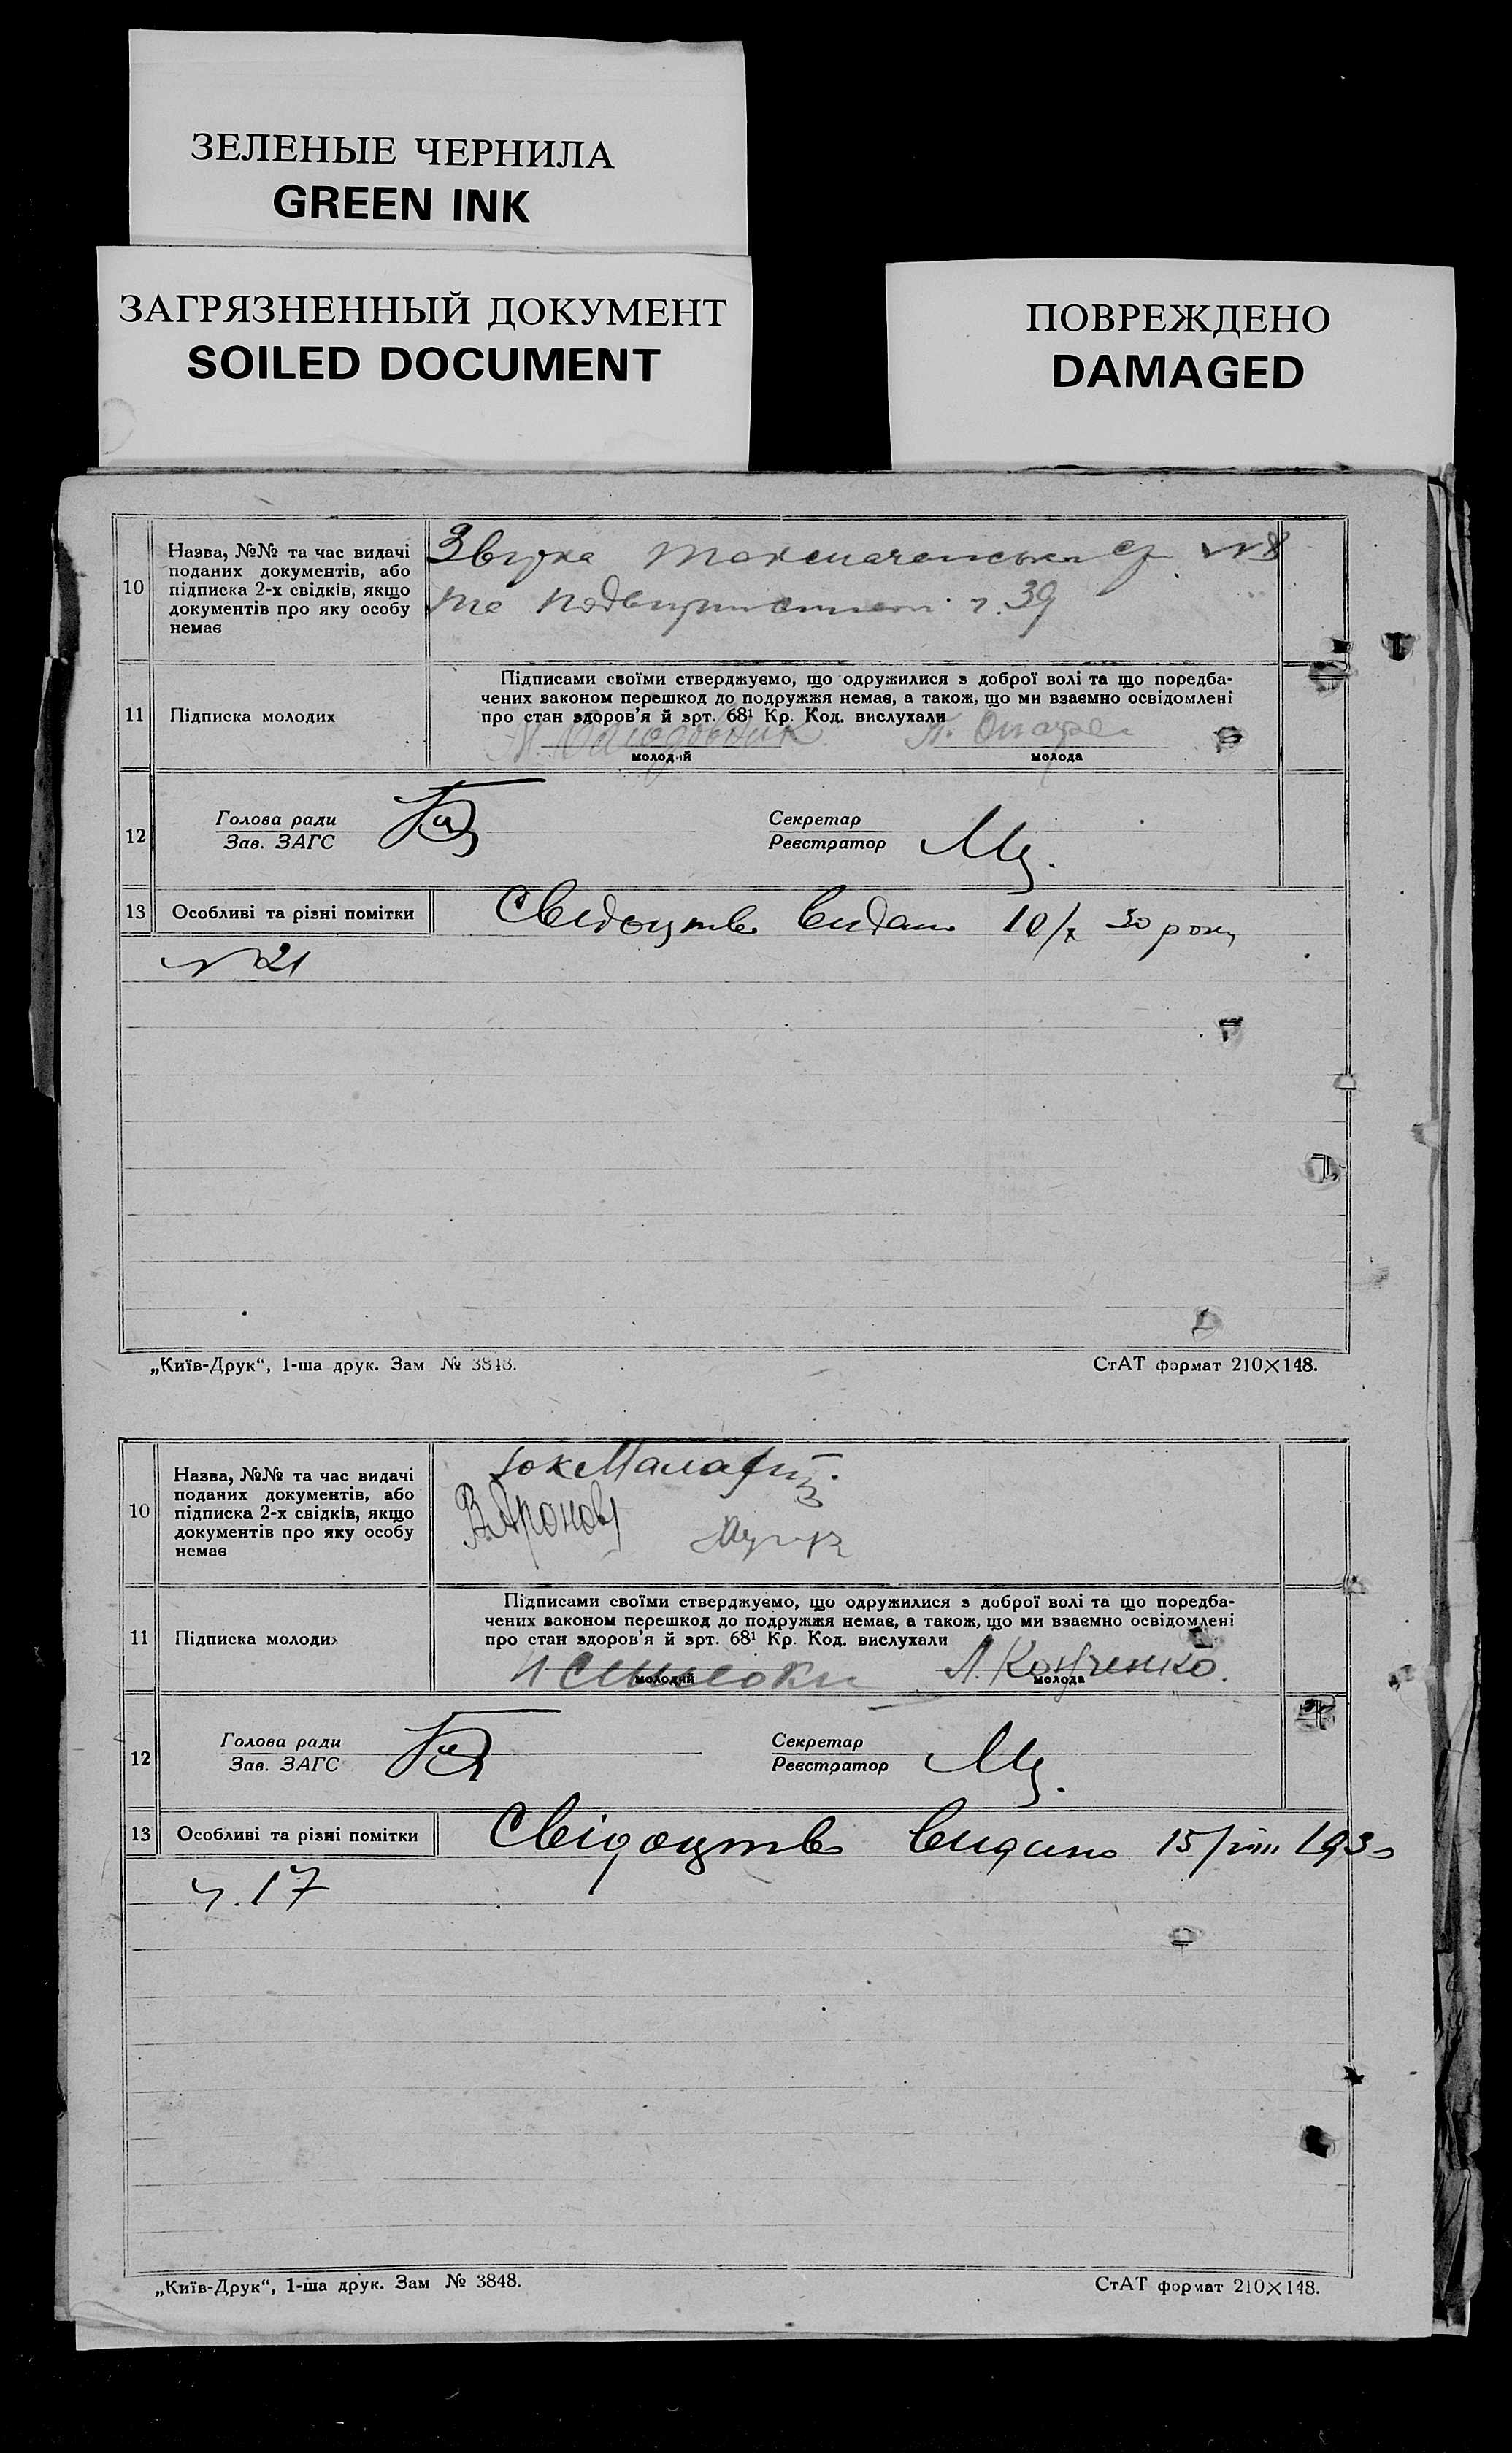 ЗЕЛЕНЫЕ ЧЕРНИЛА
GREEN INK
ЗАГРЯЗНЕННЫЙ ДОКУМЕНТ
SOILED DOCUMENT
ПОВРЕЖДЕНО
DAMAGED
10
Назва, №№ та час видачі
поданих документів, або
підписка 2-х свідків, якщо
документів про яку особу
немає
№ 8
та ч. 39
11
Підписка молодих
Підписами своїми стверджуємо, що одружилися з доброї волі та що поредба-
чених законом перешкод до подружжя немає, а також, що ми взаємно освідомлені
про стан здоров'я й арт. 68¹ Кр. Код. вислухали
молодий
молода
12
Голова ради
Зав. ЗАГС
Секретар
Реєстратор
13
Особливі та різні помітки
Свідоцтво видано 10/X 30 року
№ 21
„Київ-Друк“, 1-ша друк. Зам № 3848.
СтАТ формат 210×148.
10
Назва, №№ та час видачі
поданих документів, або
підписка 2-х свідків, якщо
документів про яку особу
немає
11
Підписка молодих
Підписами своїми стверджуємо, що одружилися з доброї волі та що поредба-
чених законом перешкод до подружжя немає, а також, що ми взаємно освідомлені
про стан здоров'я й арт. 68¹ Кр. Код. вислухали
молодий
молода
12
Голова ради
Зав. ЗАГС
Секретар
Реєстратор
13
Особливі та різні помітки
Свідоцтво видано 15/VIII 1930
ч. 17
„Київ-Друк“, 1-ша друк. Зам № 3848.
СтАТ формат 210×148.